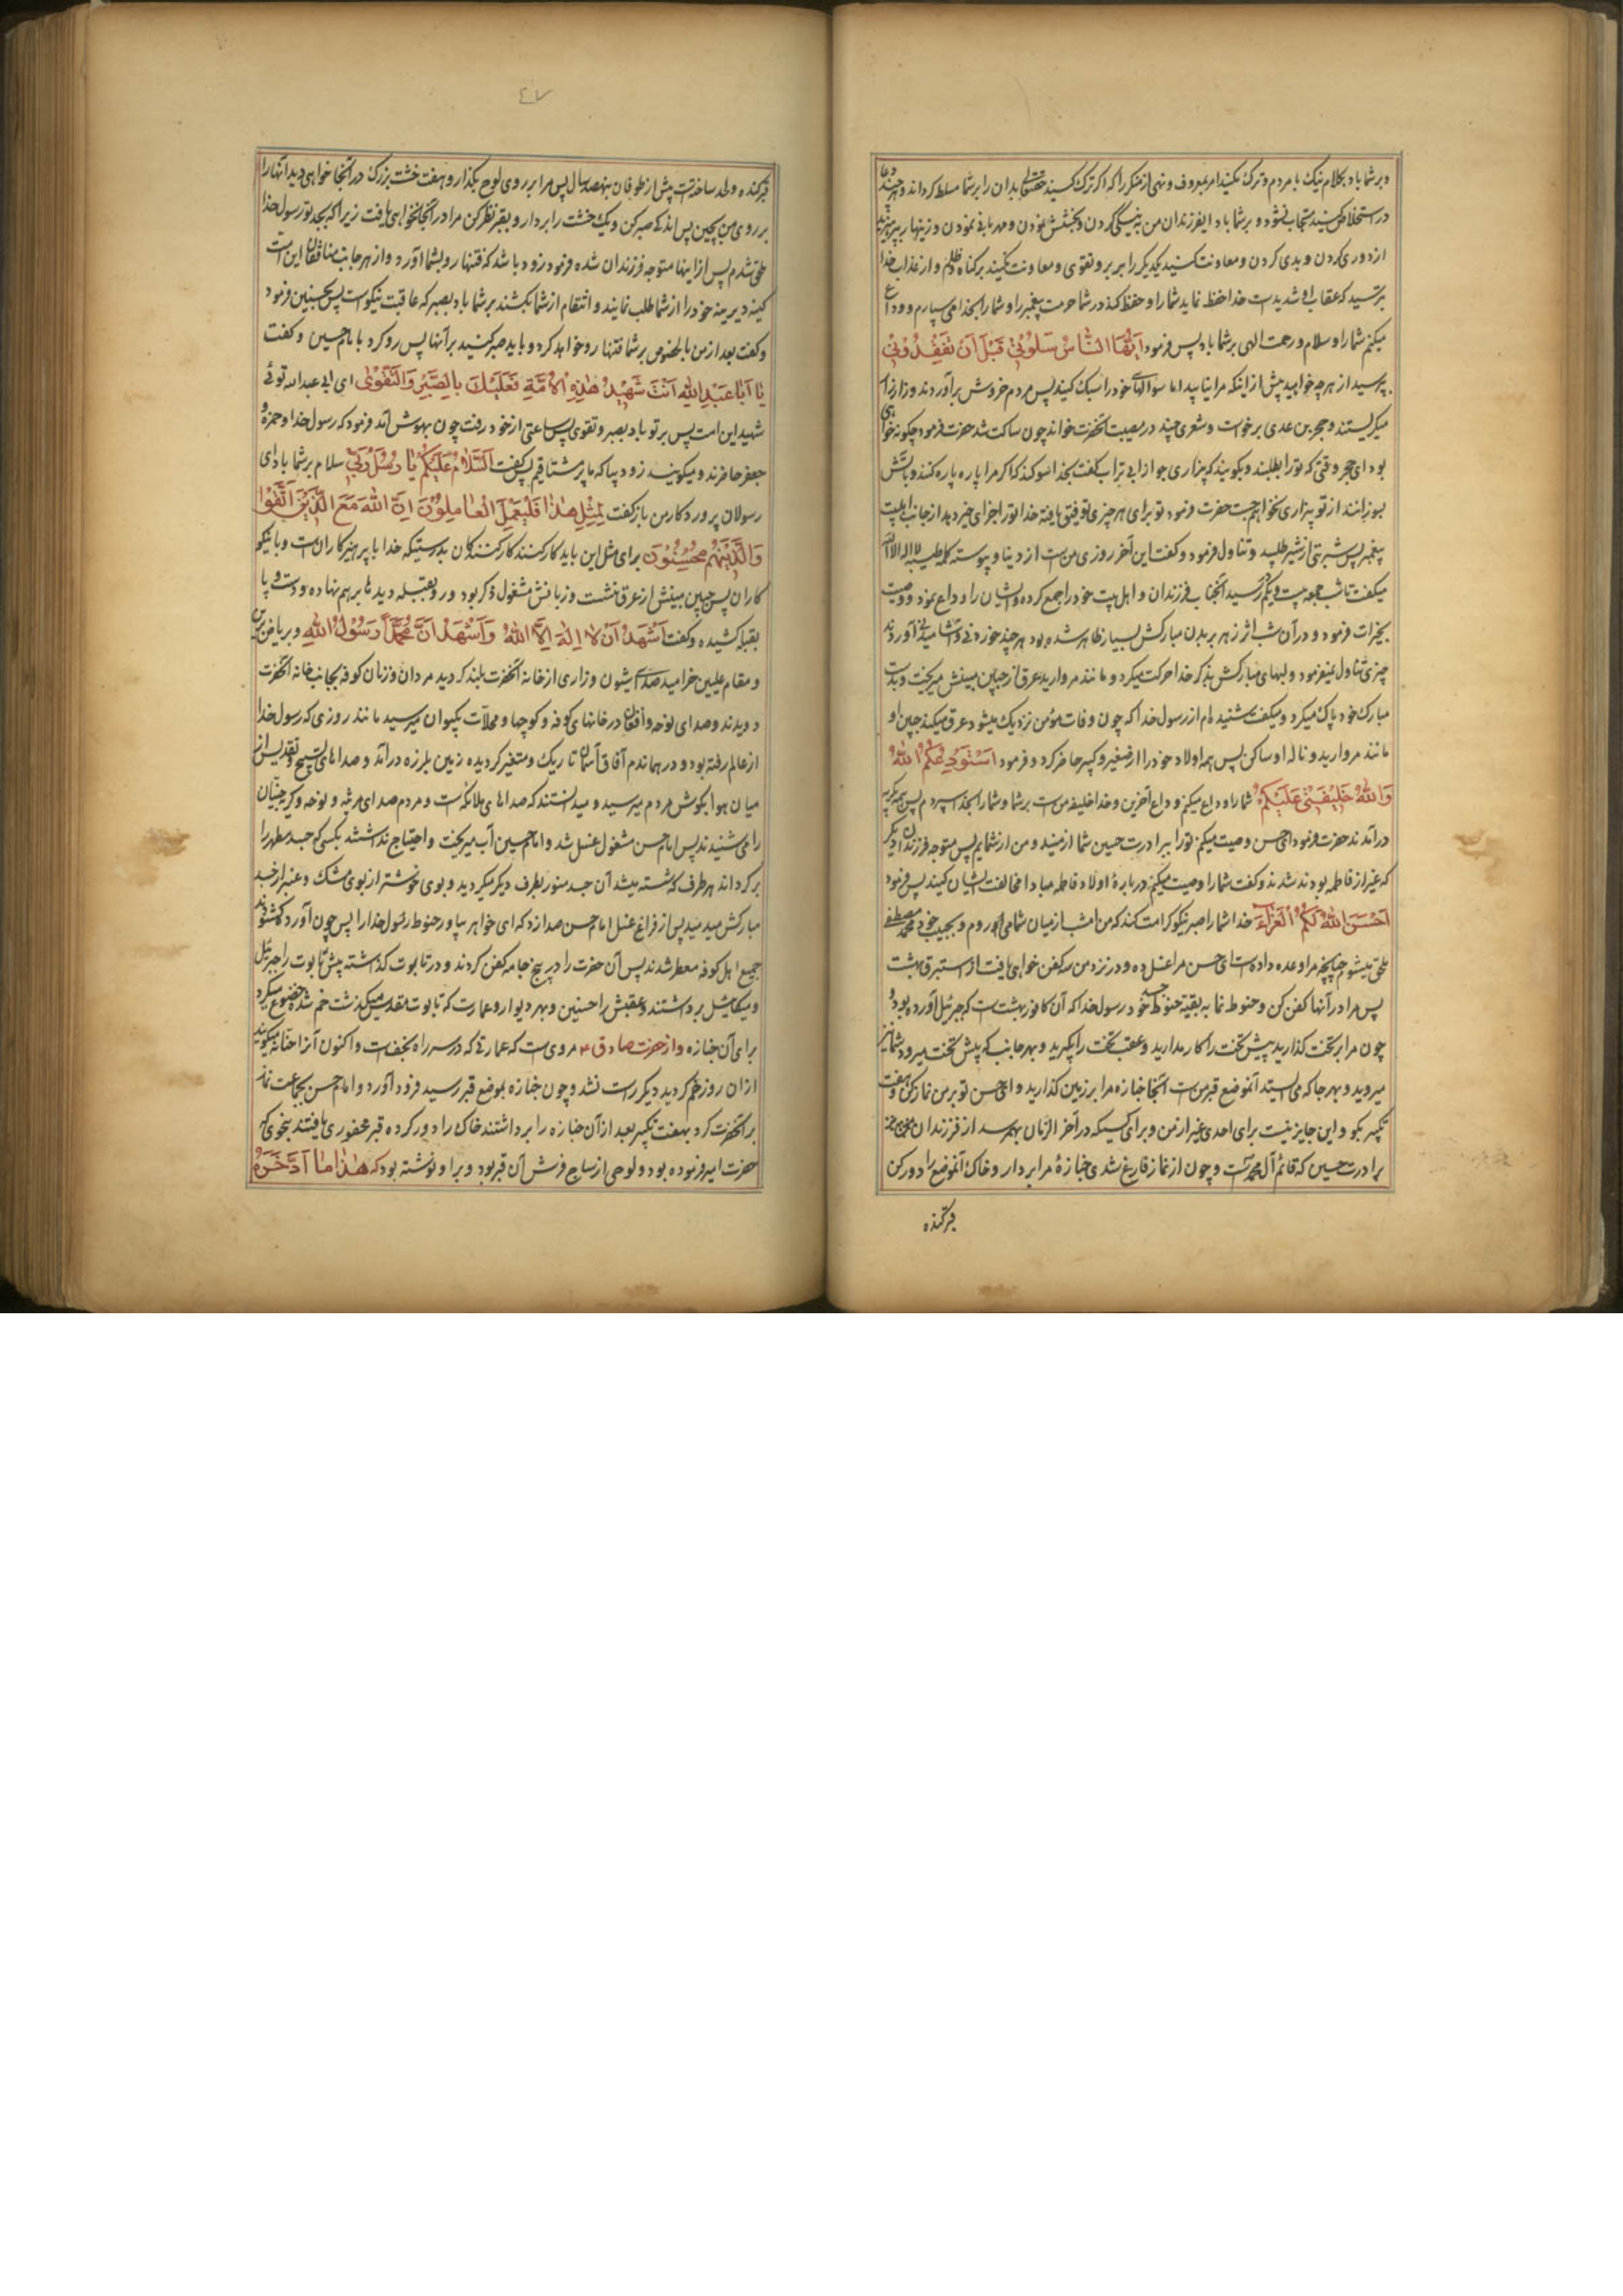 و بر شما باد بکلام نیک با مردم و ترک مکنید امر بمعروف و نهی از منکر را که اگر ترک کنید حقتعالی بدان را بر شما مسلط کرداند و هر چند دعا
در استخلاص کنید مستجاب نشود و بر شما باد ایفرزندان من به نیکی کردن و بخشش نمودن و مهربانی نمودن و زینهار بپرهیزید
از دوری کردن و بدی کردن و معاونت کنید یکدیکر را بر بر و تقوی و معاونت مکنید بر کناه و ظلم و از عذاب خدا
بترسید که عقاب او شدیدست خدا حفظ نماید شما را و حفظ کند در شما حرمت پیغمبر را و شما را بخدا می سپارم و وداع
میکنم شما را و سلام و رحمت الهی بر شما باد پس فرمود اَیُّهَا النّاسُ سَلُونی قَبْلَ اَنْ تَفْقِدُونی
بپرسید از هر چه خواهید پیش از اینکه مرا نیابید اما سؤالهای خود را سبک کنید پس مردم خروش برآوردند و زار زار
میکریستند و حجر بن عدی برخواست و شعری چند در مصیبت آنحضرت خواند چون ساکت شد حضرت فرمود چکونه خواهی
بود ای حجر وقتی که تو را بطلبند و بکویند که بیزاری جو از ابی تراب کفت بخدا سوکند که اکر مرا پاره پاره کنند و بآتش
بسوزانند از تو بیزاری نخواهم جست حضرت فرمود تو برای هر چیزی توفیق یافتهٔ خدا تو را جزای خیر دهد از جانب اهلبیت
پیغمبر پس شربتی از شیر طلبید و تناول فرمود و کفت این آخر روزی من است از دنیا و پیوسته کلمه طیبه لا اله الا الله
میکفت تا شب جمعه بیست و یکم رسید آنجناب فرزندان و اهل بیت خود را جمع کرده و ایشان را وداع نمود و وصیت
بخیرات فرمود و در آن شب اثر زهر بر بدن مبارکش بسیار ظاهر شده بود هر چند خوردنی و آشامیدنی آوردند
چیزی تناول نمیفرمود و لبهای مبارکش بذکر خدا حرکت میکرد و مانند مروارید عرق از جبین مبینش میریخت و بدست
مبارک خود پاک میکرد و میکفت شنیده ام از رسول خدا که چون وفات مؤمن نزدیک میشود عرق میکند جبین او
مانند مروارید و ناله او ساکن پس همه اولاد خود را از صغیر و کبیر حاضر کرد و فرمود اَسْتَوْدِعُکُمُ اللهُ
وَاللهُ خَلیفَتی عَلَیْکُمْ شما را وداع میکنم وداع آخرین و خدا خلیفه من است بر شما و شما را بخدا سپردم پس همه بکریه
درآمدند حضرت فرمود ای حسن وصیت میکنم تو را ببرادرت حسین شما از منید و من از شمایم پس متوجه فرزندان دیکر
که غیر از فاطمه بودند شد و کفت شما را وصیت میکنم در بارهٔ اولاد فاطمه مبادا مخالفت ایشان کنید پس فرمود
اَحْسَنَ اللهُ لَکُمُ الْعَزاءَ خدا شما را صبر نیکو کرامت کند که من امشب از میان شما میروم و بحبیب خود محمد مصطفی
ملحق میشوم چنانچه مرا وعده داده است ای حسن مرا غسل ده و در نزد من کفن خواهی یافت از استبرق بهشت
پس مرا در آنها کفن کن و حنوط نما به بقیه حنوط جد خود رسول خدا که آن کافور بهشت است که جبرئیل آورده بود و
چون مرا بر تخت کذارید پیش تخت را کار مدارید و عقب تخت را بکیرید و بهر جانب که پیش تخت میرود شما نیز
میروید و بهر جا که می ایستد آنموضع قبر من است آنجا جنازه مرا بر زمین کذارید و ای حسن تو بر من نماز کن و هفت
تکبیر بکو و این جایز نیست برای احدی غیر از من و برای کسیکه در آخر الزمان بهم رسد از فرزندان
برادرت حسین که قائم آل محمد است و چون از نماز فارغ شدی جنازهٔ مرا بردار و خاک آنموضع را دور کن
قبر کنده
٤٧
قبر کنده و لحد ساخته است پیش از طوفان بهفتصد سال پس مرا بر روی لوح بکذار و هفت خشت بزرک در آنجا خواهی دید آنها را
بر روی من بچین پس اندکی صبر کن و یک خشت را بردار و بقبر نظر کن مرا در آنجا نخواهی یافت زیرا که بجد تو رسول خدا
ملحق شدم پس از اینها متوجه فرزندان شده فرمود زود باشد که فتنها رو بشما آورد و از هر جانب منافقان این امت
کینه دیرینه خود را از شما طلب نمایند و انتقام از شما بکشند بر شما باد بصبر که عاقبت نیکوست پس بحسنین فرمود
و کفت بعد از من بالخصوص بر شما فتنها رو خواهد کرد و باید صبر کنید بر آنها پس رو کرد با امام حسین و کفت
یا اَبا عَبْدِ اللهِ اَنْتَ شَهیدُ هٰذِهِ الْاُمَّةِ فَعَلَیْکَ بِالصَّبْرِ وَالتَّقْوٰی ای ابی عبدالله توئی
شهید این امت پس بر تو باد بصبر و تقوی پس ساعتی از خود رفت چون بهوش آمد فرمود که رسول خدا و حمزه و
جعفر حاضرند و میکویند زود بیا که ما بر تو مشتاقیم پس کفت اَلسَّلامُ عَلَیْکُمْ یا رُسُلَ رَبّی سلام بر شما باد ای
رسولان پروردکار من باز کفت لِمِثْلِ هٰذا فَلْیَعْمَلِ الْعامِلُونَ اِنَّ اللهَ مَعَ الَّذینَ اتَّقَوْا
وَالَّذینَهُمْ مُحْسِنُونَ برای مثل این باید کار کنند کارکنندکان بدرستیکه خدا با پرهیزکاران است و با نیکو
کاران پس جبین مبینش از عرق نشست و زبانش مشغول ذکر بود و رو بقبله دیدها بر هم نهاده و دست و پا
بقبله کشیده و کفت اَشْهَدُ اَنْ لا اِلٰهَ اِلَّا اللهُ وَاَشْهَدُ اَنَّ مُحَمَّداً رَسُولُ اللهِ و بریاض
و مقام علیین خرامید صدای شیون و زاری از خانه آنحضرت بلند کردید مردان و زنان کوفه بجانب خانه آنحضرت
دویدند و صدای نوحه و افغان در خانهای کوفه و کوچها و محلات بکیوان میرسید مانند روزی که رسول خدا
از عالم رفته بود و در همان دم آفاق آسمان تاریک و متغیر کردیده زمین بلرزه درآمد و صداهای تسبیح و تقدیس از
میان هوا بکوش مردم میرسید و میدانستند که صداهای ملائکه است و مردم صدای مرثیه و نوحه و کریه جنیان
را می شنیدند پس امام حسن مشغول غسل شد و امام حسین آب میریخت و احتیاج نداشتند بکسی که جسد مطهر را
برکرداند هر طرف که شسته میشد آن جسد منور بطرف دیکر میکردید و بوی خوشتر از بوی مشک و عنبر از جسد
مبارکش میدمید پس از فراغ غسل امام حسن صدا زد که ای خواهر بیاور حنوط رسول خدا را پس چون آورد کشودند
جمیع اهل کوفه معطر شدند پس آن حضرت را در پنج جامه کفن کردند و در تابوت کذاشته پیش تابوت را جبرئیل
و میکائیل برداشتند و عقبش را حسنین و بهر دیوار و عمارت که تابوت مقدس میکذشت خم شده خضوع میکرد
برای آن جنازه و از حضرت صادق ع مروی است که عمارتی که در سر راه نجف است و اکنون آنرا حنانه میکویند
از آن روز خم کردید دیکر راست نشد و چون جنازه بموضع قبر رسید فرود آورد و امام حسن بجماعت نماز
بر آنحضرت کرد بهفت تکبیر بعد از آن جنازه را برداشتند خاک را دور کرده قبر محفوری یافتند بنحوی که
حضرت امیر فرموده بود و لوحی از ساج فرش آن قبر بود و بر او نوشته بود که هٰذا ما ادَّخَرَهُ